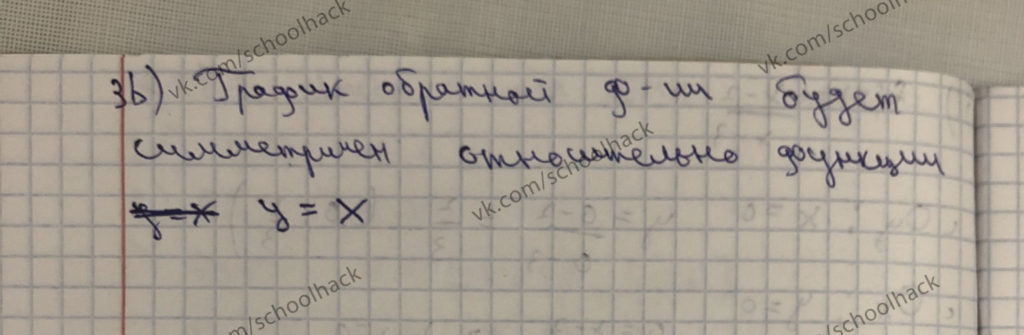 vk.com/schoolhack
vk.com/schoolhack
3б) График обратной ф-ии будет
симметричен относительно функции
vk.com/schoolhack
y = x y = x
m/schoolhack
/schoolhack